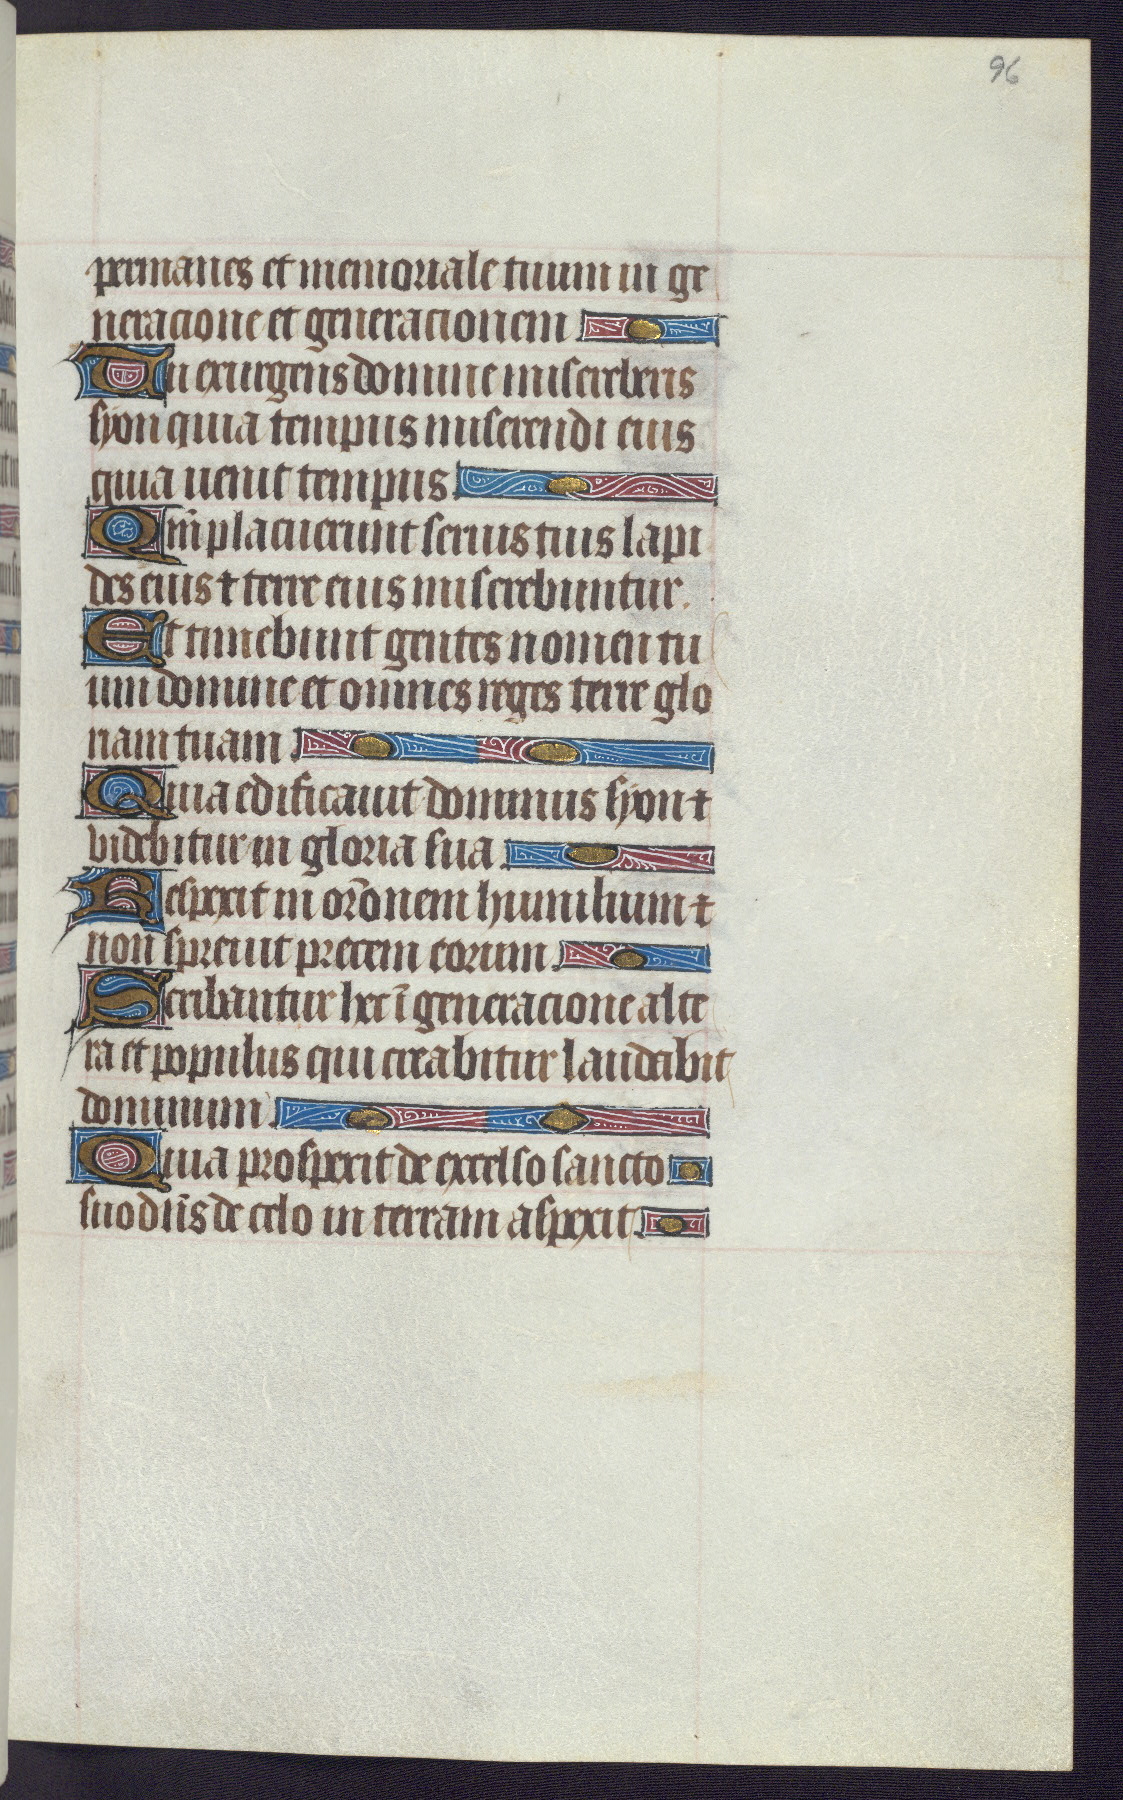 96
permanes et memoriale tuum in ge
neracione et generacionem
Tu exurgens domine misereberis
syon quia tempus miserendi eius
quia uenit tempus
Qm̄ placuerunt seruis tuis lapi
des eius ⁊ terre eius miserebuntur.
Et timebunt gentes nomen tu
um domine et omnes reges terre glo
riam tuam
Quia edificauit dominus syon ⁊
videbitur in gloria sua
Respexit in orōnem humilium ⁊
non spreuit precem eorum
Scribantur hec ī generacione alte
ra et populus qui creabitur laudabit
dominum
Quia prospexit de excelso sancto
suo dn̄s de celo in terram aspexit